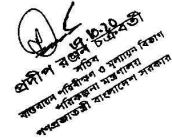 প্রদীপ রঞ্জন চক্রবর্তী
সচিব
বাস্তবায়ন পরিবীক্ষণ ও মূল্যায়ন বিভাগ
পরিকল্পনা মন্ত্রণালয়
গণপ্রজাতন্ত্রী বাংলাদেশ সরকার